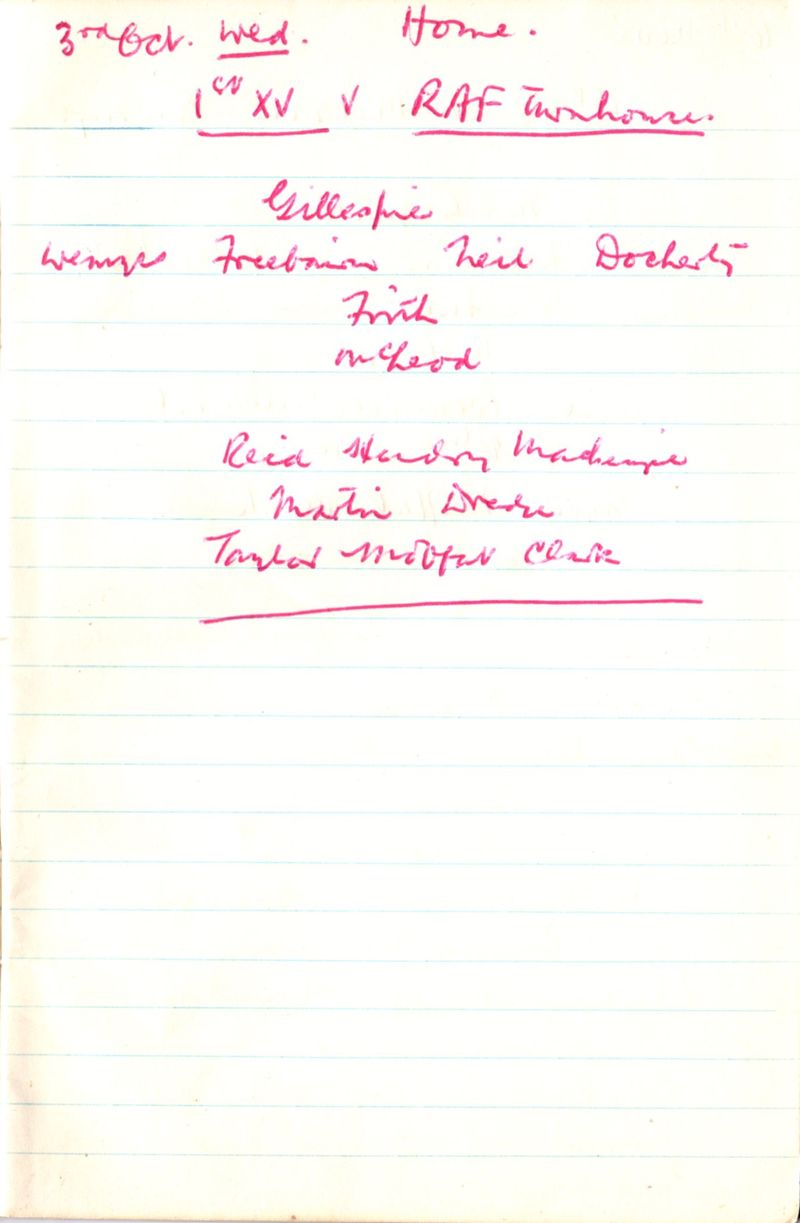 3rd Oct. Wed. Home.
1st XV v RAF Turnhouse.
Gillespie
Wemyss Freebairn Neil Docherty
Firth
McLeod
Reid Hendry Mackenzie
Martin Dredge
Taylor Moffat Clark